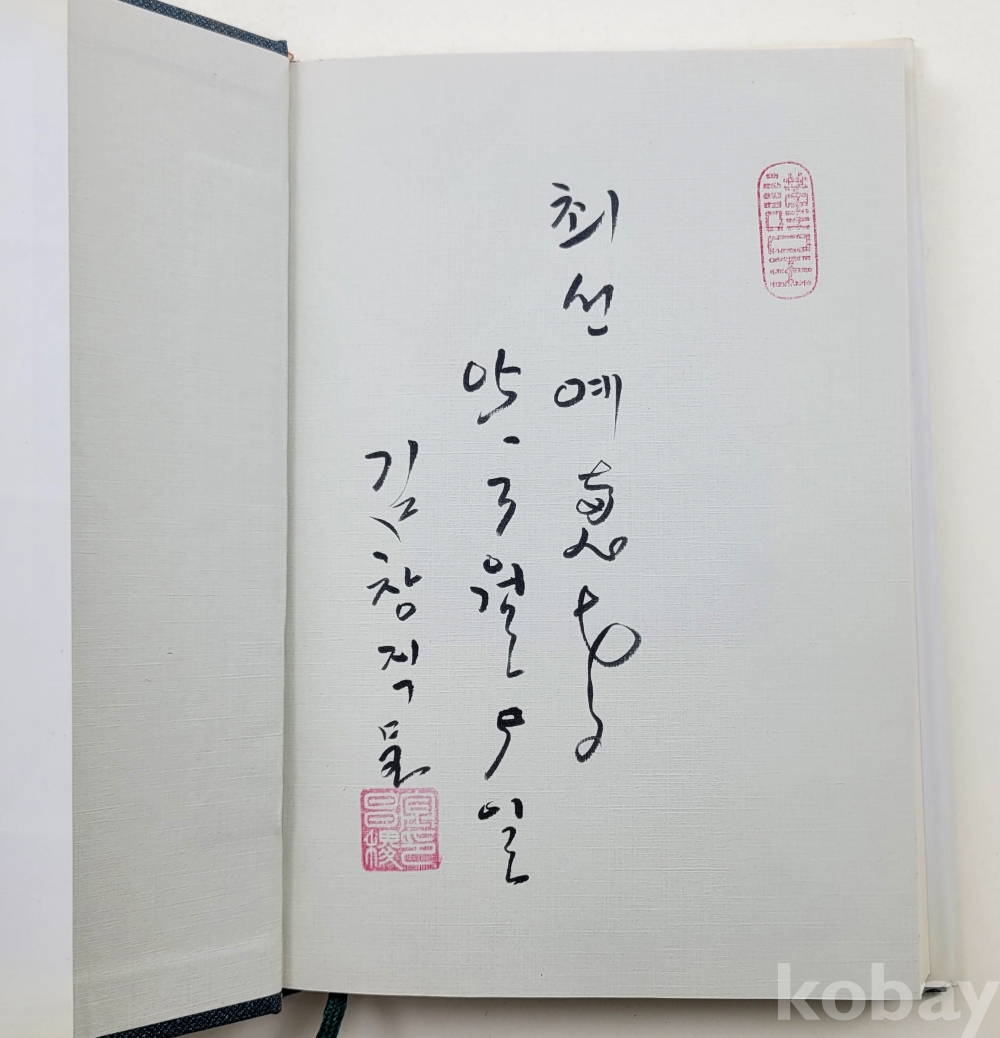 최선예 惠存
95. 3월 9일
김창직 呈
kobay